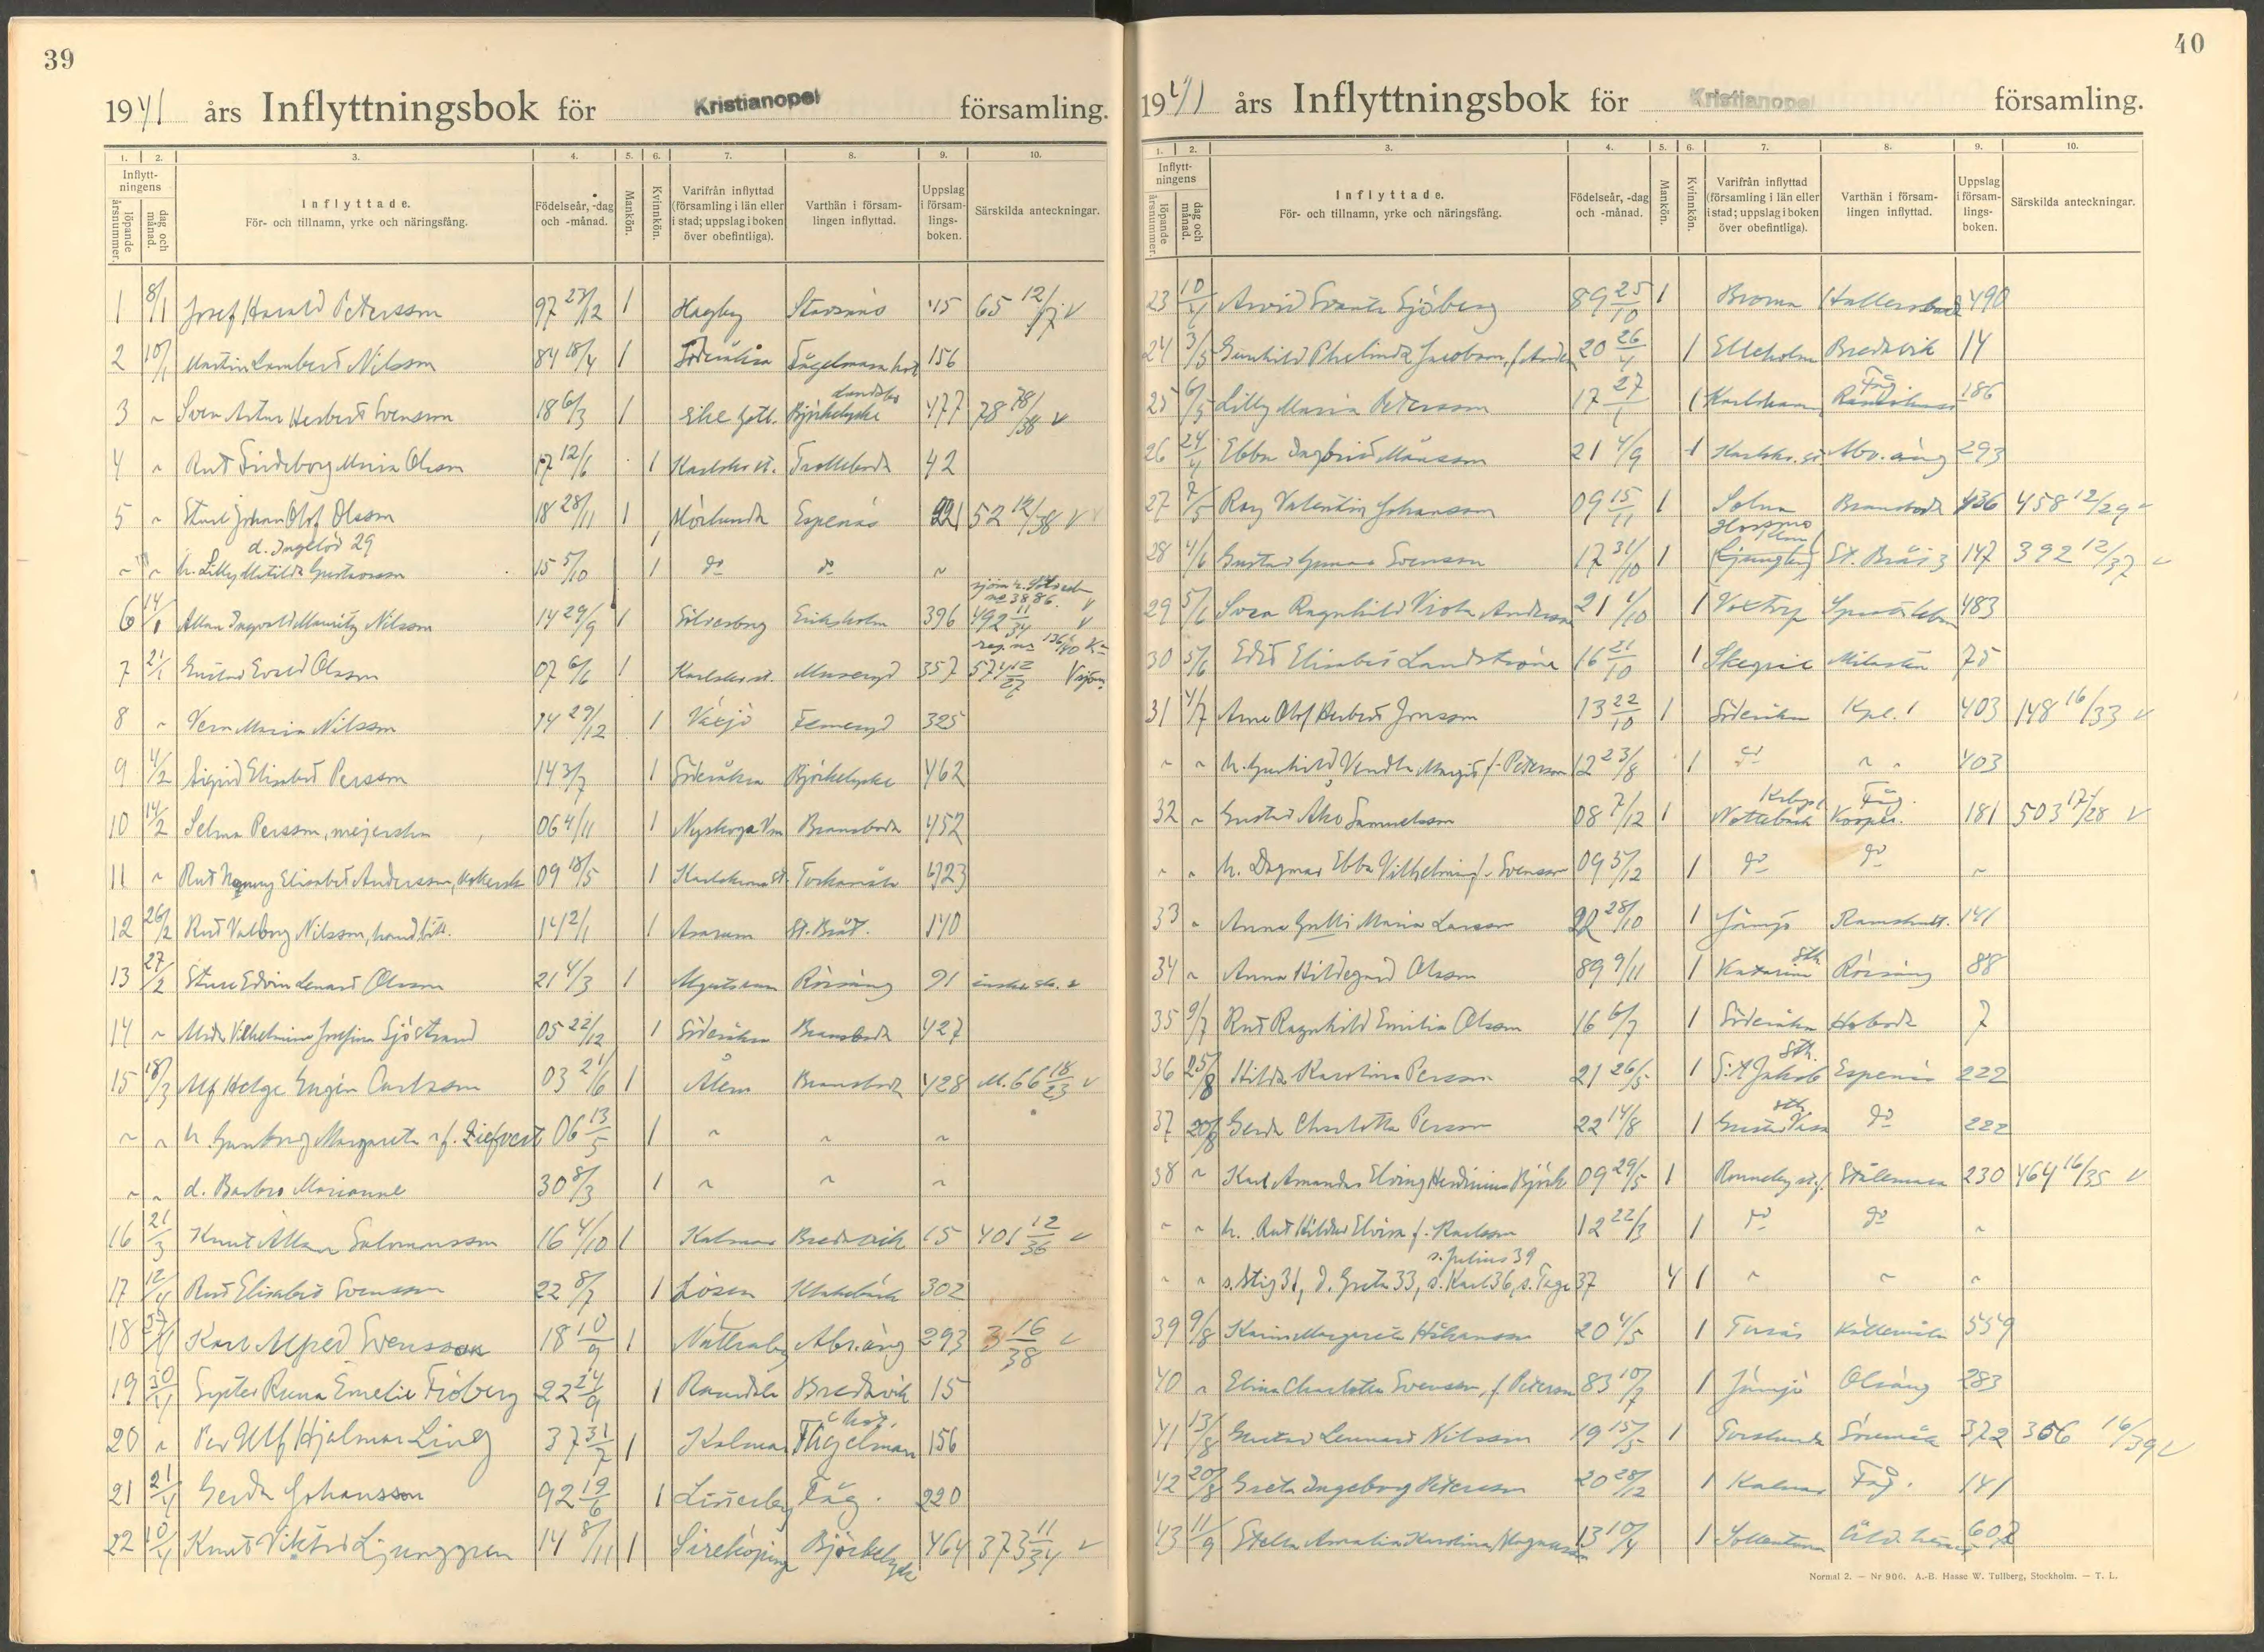 39
1941 års Inflyttningsbok för Kristianopel församling.
1. 2. 3. 4. 5. 6. 7. 8. 9. 10.
Inflytt-
ningens
löpande
årsnummer.
dag och
månad.
Inflyttade.
För- och tillnamn, yrke och näringsfång.
Födelseår, -dag
och -månad.
Mankön.
Kvinnkön.
Varifrån inflyttad
(församling i län eller
i stad; uppslag i boken
över obefintliga).
Varthän i försam-
lingen inflyttad.
Uppslag
i försam-
lings-
boken.
Särskilda anteckningar.
1 8/1 Josef Harald Petersson 97 23/12 1 Hagby Stavsnäs 45 65 12/17 v
2 10/1 Martin Lambert Nilsson 84 18/4 1 Söderåkra Fågelmara 156
3 " Sven Artur Herbert Svensson 18 6/3 1 Björkelycke 477 78 v
4 " Rut Ingeborg Maria Olsson 17 12/6 1 Karlskr. st. Trolleboda 42
5 " Sture Johan Olof Olsson 18 28/11 1 Mörlunda Espenäs 221 52 12/38 v
d. Ingelöd 29
" " h. Lilly Matilda Gustavsson 15 5/10 1 do do "
6 14/1 Allan Ingvald Mauritz Nilsson 14 29/9 1 Sölvesborg Eriksholm 396 492 11/34 v
7 21/1 Gustav Evald Olsson 07 6/6 1 Karlskr. st. 357 571 12/27
8 " Vera Maria Nilsson 14 29/12 1 Växjö Femeryd 325
9 4/2 Sigrid Elisabet Persson 14 3/7 1 Söderåkra Björkelycke 462
10 14/2 Selma Persson, mejerska 06 4/11 1 Nyskoga Vm Bromboda 452
11 " Rut Elisabet Andersson 09 18/5 1 Karlskrona st. Torhamn 423
12 26/2 Rut Valborg Nilsson, handbitr. 14 2/1 1 Asarum St. Bröt. 140
13 27/2 Sture Edvin Lennart Olsson 21 4/3 1 Rörsäng 91
14 " Vilhelmina Josefina Sjöstrand 05 22/12 1 Söderåkra Bromsboda 427
15 18/3 Alf Helge Engin Carlsson 03 21/6 1 Ålem Bromsboda 428 M. 66 18/23 v
" " h. Gunborg Margareta f. Ziefvert 06 13/5 1 " " "
" " d. Barbro Marianne 30 8/3 1 " " "
16 21/3 Knut Allan Salomonsson 16 4/10 1 Kalmar Bredavik 15 401 12/36 v
17 12/4 Rut Elisabet Svensson 22 8/7 1 Lösen Klakebäck 302
18 Karl Alfred Svensson 18 10/9 1 Nättraby Abr.äng 293 3 16/38 v
19 30/4 Syster Runa Emelie Fröberg 22 24/9 1 Ramdala Bredavik 15
20 " Per Ulf Hjalmar Ling 37 31/7 1 Kalmar Fågelmara 156
21 21/4 Gerda Johansson 92 19/6 1 Listerby Fåg. 220
22 10/4 Knut Viktor Ljunggren 14 8/11 1 Sireköpinge Björkelycke 464 373 11/34 v
40
1941 års Inflyttningsbok för Kristianopel församling.
1. 2. 3. 4. 5. 6. 7. 8. 9. 10.
Inflytt-
ningens
löpande
årsnummer.
dag och
månad.
Inflyttade.
För- och tillnamn, yrke och näringsfång.
Födelseår, -dag
och -månad.
Mankön.
Kvinnkön.
Varifrån inflyttad
(församling i län eller
i stad; uppslag i boken
över obefintliga).
Varthän i försam-
lingen inflyttad.
Uppslag
i försam-
lings-
boken.
Särskilda anteckningar.
23 Arvid Svante Sjöberg 89 25/10 1 Bromma Hallersboda 490
24 3/5 Gunhild Jacobson 20 26/4 1 Elleholm Bredavik 14
25 6/5 Lilly Maria Petersson 17 27/1 1 Karlshamn Fåg 186
26 24/4 Ebba Ingbritt Månsson 21 4/9 1 Karlskr. st. Abr. äng 293
27 7/5 Ray Valentin Johansson 09 15/11 1 Solna Bromsboda 436 458 12/29 v
28 4/6 Gustav Gunnar Svensson 17 31/10 1 Hossmo Ljungby St. Brö 147 392 12/37 v
29 5/6 Svea Ragnhild Viola Andersson 21 4/10 1 Voxtorp 483
30 5/6 Edit Elisabet Landström 16 21/10 1 Skegrie Milasten 75
31 4/7 Arne Olof Herbert Jonsson 13 22/10 1 Söderåkra Kpl. 1 403 148 16/33 v
" " h. Gunhild Vendla Margit f. Peterson 12 23/8 1 do " " 403
32 " Gustav Åke Samuelsson 08 7/12 1 Nottebäck Fåg. Kooper. 181 503 17/28 v
" " h. Dagmar Ebba Vilhelmina f. Svensson 09 5/12 1 do do "
33 " Anna Gulli Maria Larsson 22 28/10 1 Jämjö 141
34 " Anna Hildegard Olsson 89 9/11 1 Katarina Sth Rörsäng 88
35 9/7 Rut Ragnhild Emilia Olsson 16 6/7 1 Söderåkra Hoboda 7
36 25/8 Hilda Karolina Persson 21 26/5 1 S:t Jakob Sth. Espenäs 222
37 20/8 Gerda Charlotta Persson 22 14/8 1 Gustav Vasa sth do 222
38 " Karl Amandus Elving Björk 09 29/5 1 Ronneby st. f. Stålemara 230 464 16/35 v
" " h. Rut Hildur Elvira f. Karlsson 12 22/3 1 do do "
s. Julius 39
" " s. Stig 31, d. Greta 33, s. Karl 36, s. Tage 37 4 1 " " "
39 9/8 Karin Margareta Håkansson 20 4/5 1 Torsås 559
40 " Elina Charlotta Svensson, f. Peterson 83 10/7 1 Jämjö Olsäng 283
41 13/8 Gustav Lennart Nilsson 19 15/5 1 Torslunda 372 366 16/39 v
42 20/8 Greta Ingeborg Petersson 20 28/12 1 Kalmar Fåg. 141
43 11/9 Stella Amalia Karolina Magnusson 13 10/4 1 Sollentuna Åld. hem 602
Normal 2. — Nr 906. A.-B. Hasse W. Tullberg, Stockholm. — T. L.